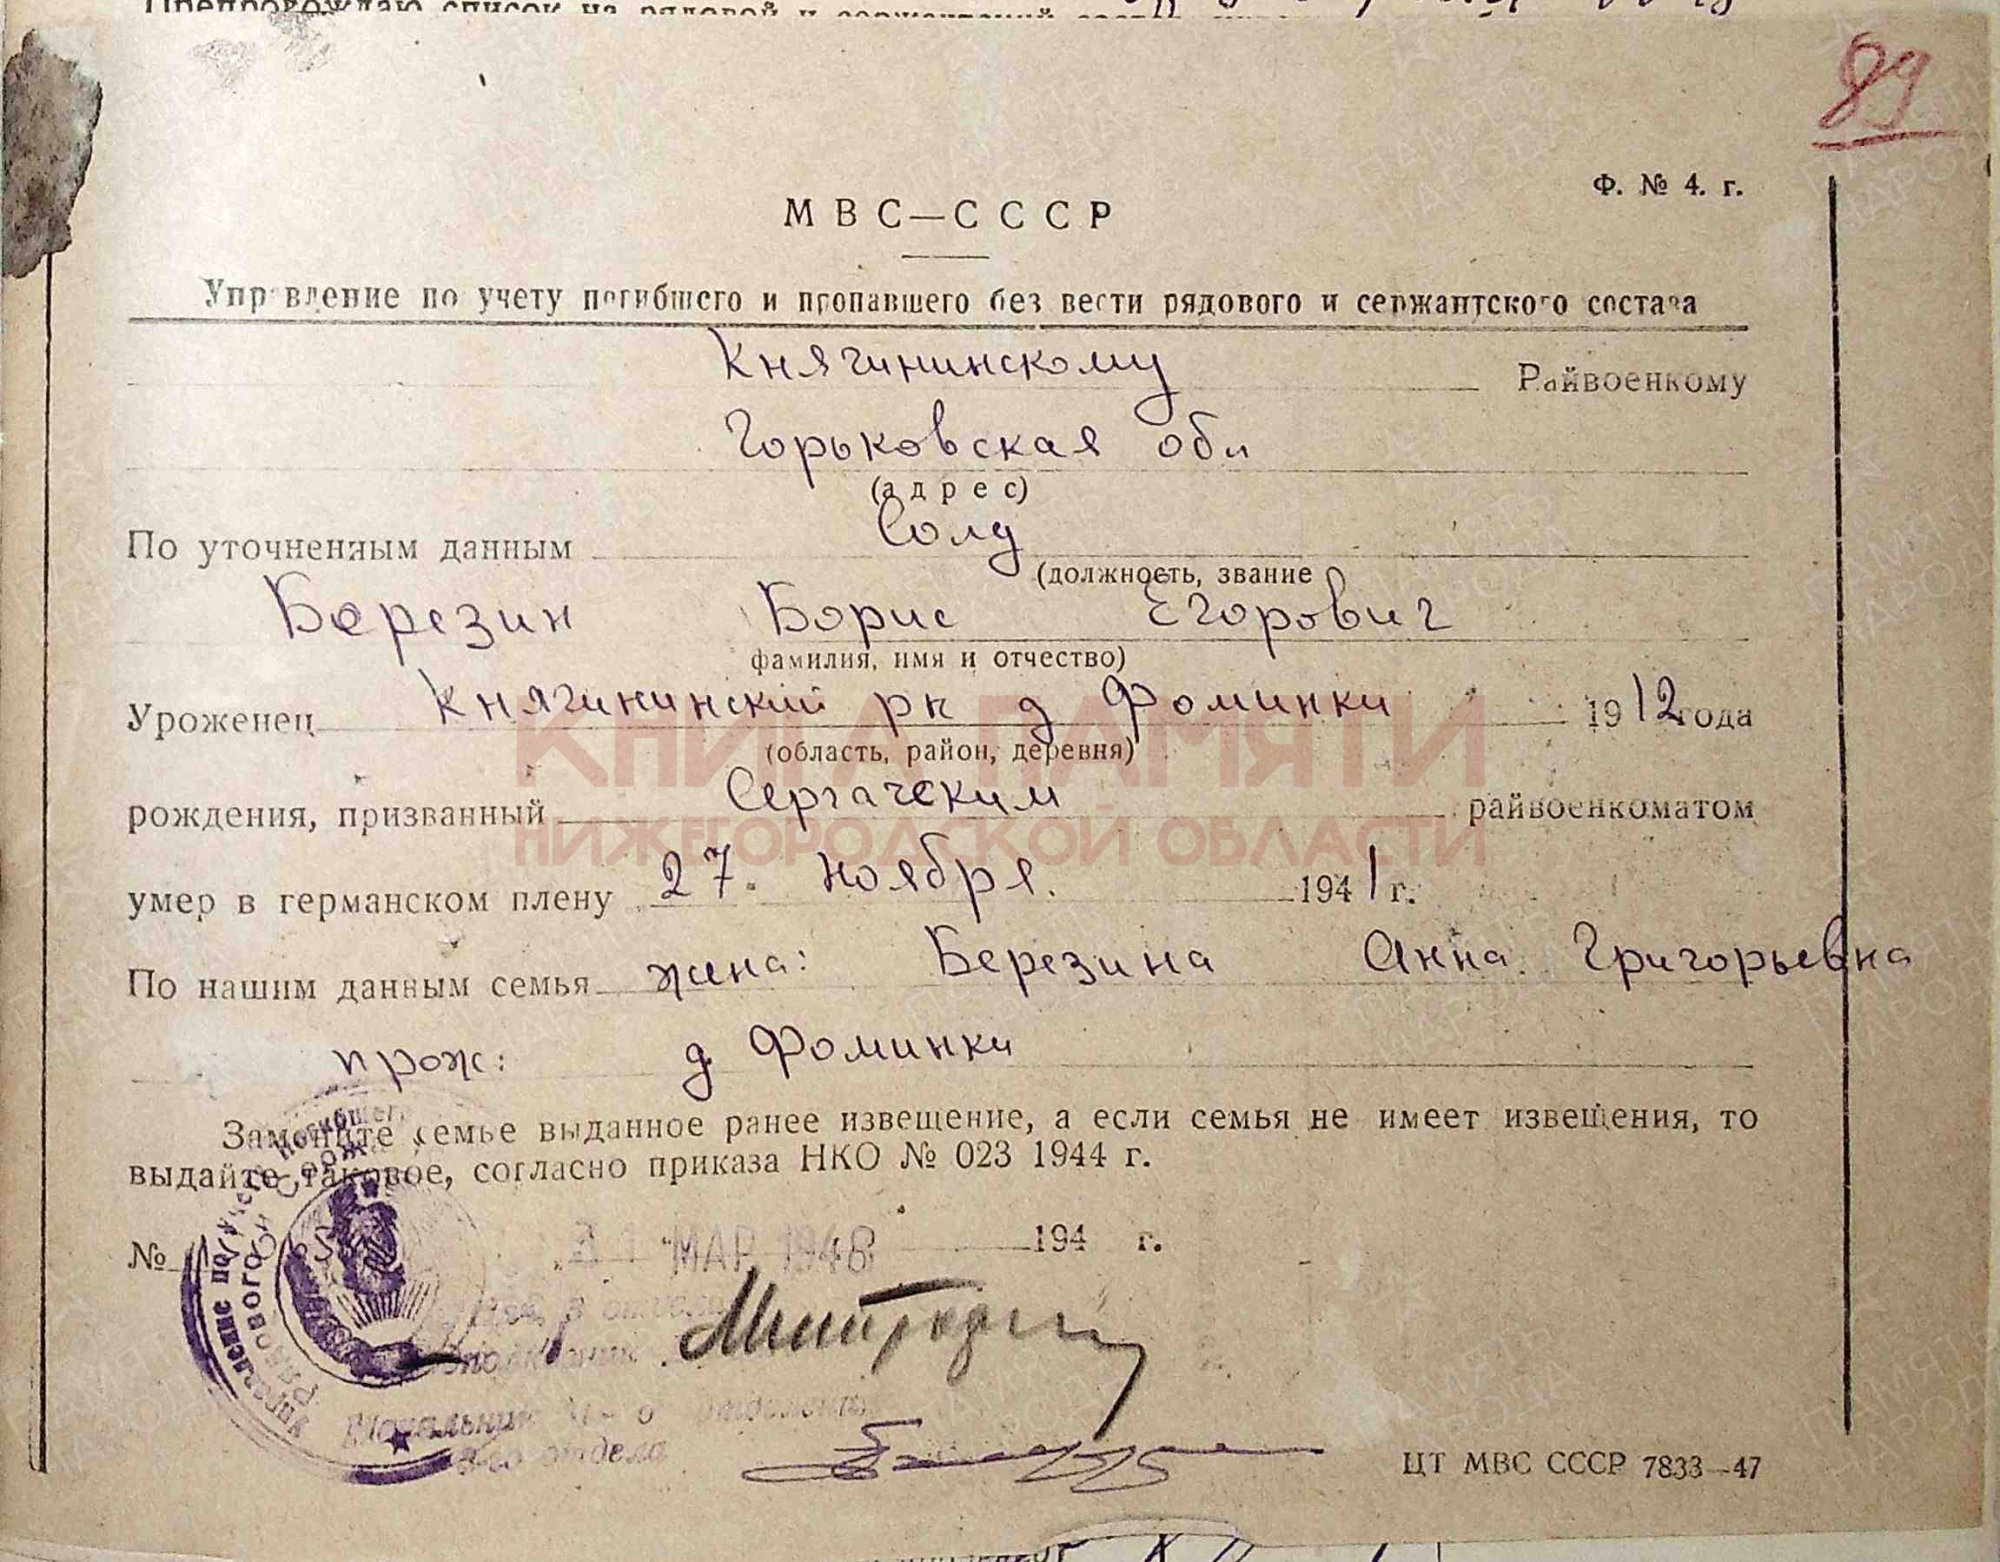 Препровождаю список на рядовой и сержантский состав
89
Ф. № 4. г.
МВС—СССР
Управление по учету погибшего и пропавшего без вести рядового и сержантского состава
Княгининскому Райвоенкому
Горьковская обл
(адрес)
По уточненным данным Солд
(должность, звание
Березин Борис Егорович
фамилия, имя и отчество)
Уроженец Княгининский рн д Фоминки 1912 года
(область, район, деревня)
КНИГА ПАМЯТИ
рождения, призванный Сергачским райвоенкоматом
НИЖЕГОРОДСКОЙ ОБЛАСТИ
умер в германском плену 27. Ноября. 1941 г.
По нашим данным семья жена: Березина Анна Григорьевна
прож: д Фоминки
Замените семье выданное ранее извещение, а если семья не имеет извещения, то
выдайте таковое, согласно приказа НКО № 023 1944 г.
№ МАР 1948 194 г.
Управление по учету погибшего
рядового и
Начальник отделения
отдела
ЦТ МВС СССР 7833—47
ПАМЯТЬ НАРОДА